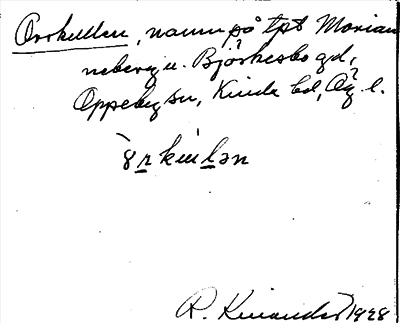 Orrkullen, namn på tpt Marian
neberg u. Björkesbo gd,
Oppeby sn, Kinda hd, Ög l.
R. Kinander 1928